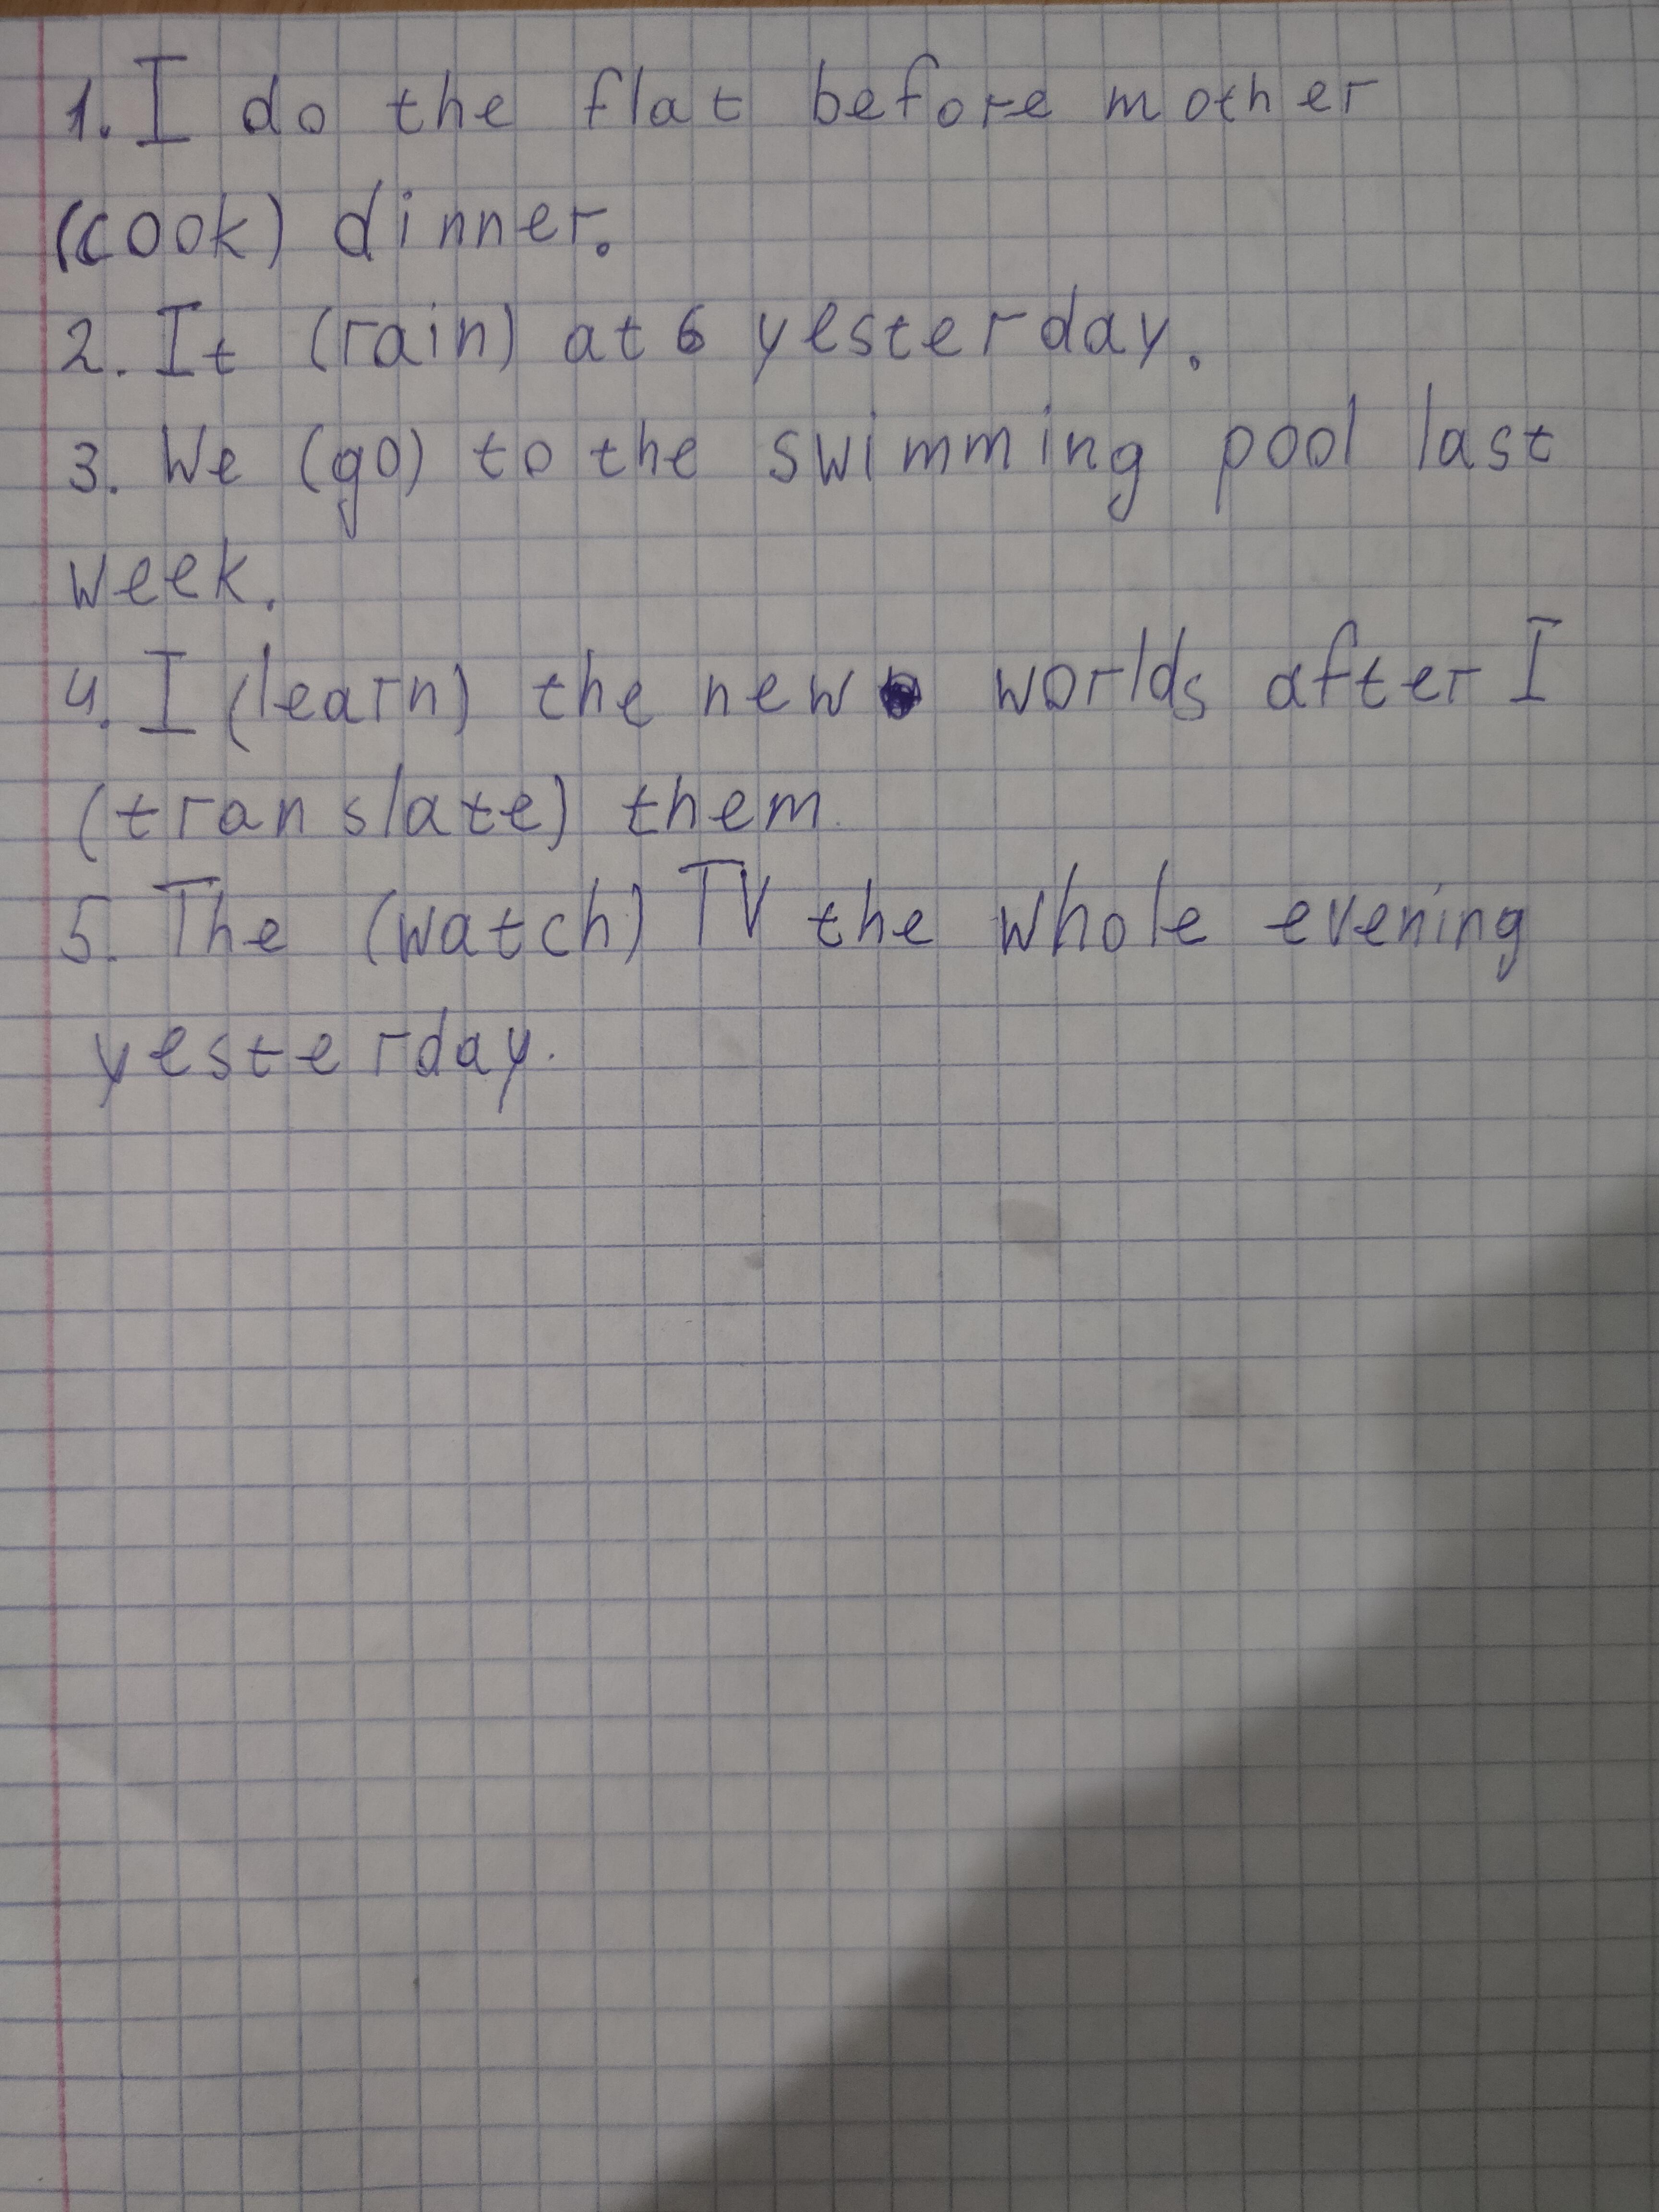 1. I do the flat before mother
(cook) dinner.
2. It (rain) at 6 yesterday.
3. We (go) to the swimming pool last
week.
4. I (learn) the new worlds after I
(translate) them.
5. The (watch) TV the whole evening
yesterday.